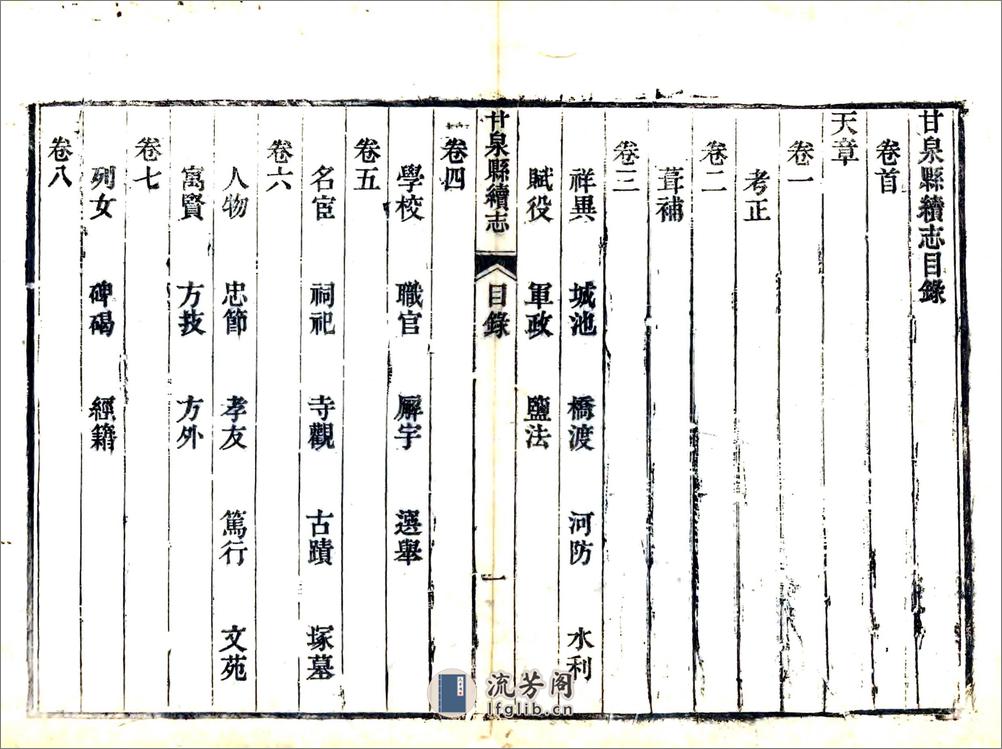 甘泉縣續志目錄
卷首
天章
卷一
考正
卷二
葺補
卷三
祥異 城池 橋渡 河防 水利
賦役 軍政 鹽法
甘泉縣續志 目錄 一
卷四
學校 職官 廨宇 選舉
卷五
名宦 祠祀 寺觀 古蹟 塚墓
卷六
人物 忠節 孝友 篤行 文苑
寓賢 方技 方外
卷七
列女 碑碣 經籍
卷八
流芳阁
lfglib.cn